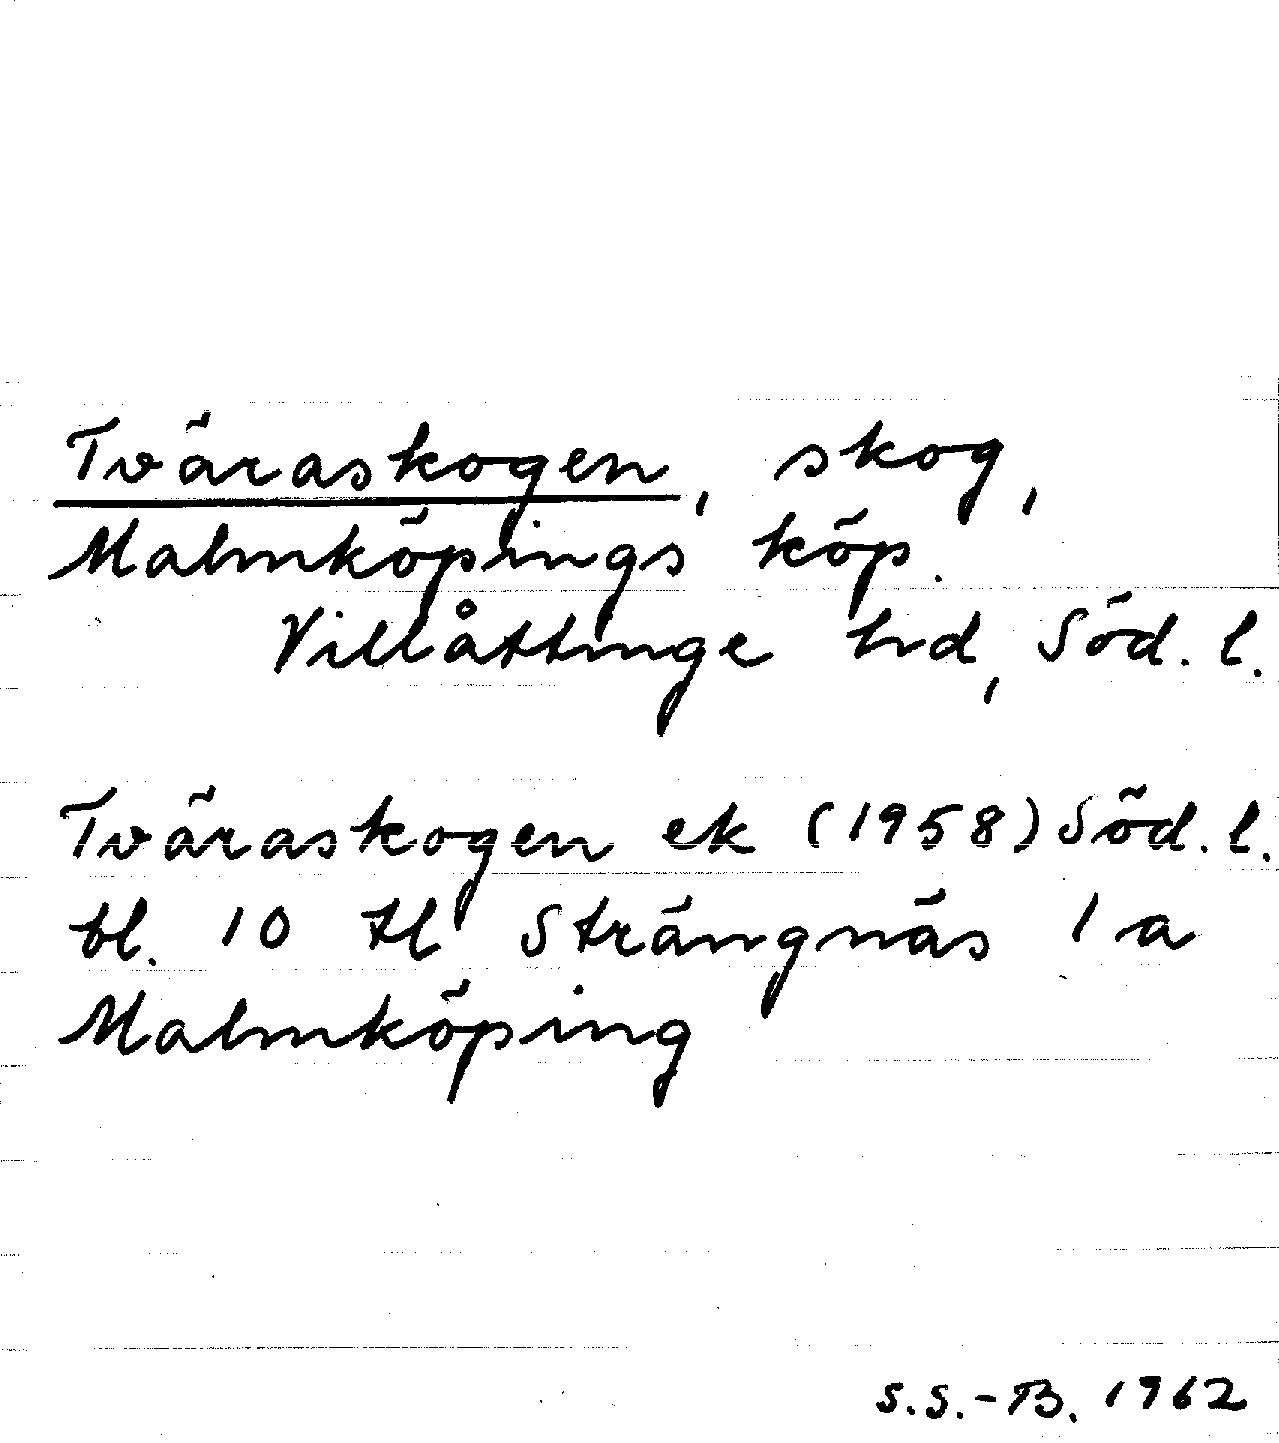 Tväraskogen, skog,
Malmköpings köp.
Villåttinge hd, Söd. l.
Tväraskogen ek (1958) Söd. l.
bl. 10 tl Strängnäs 1 a
Malmköping
S.S.-B. 1962